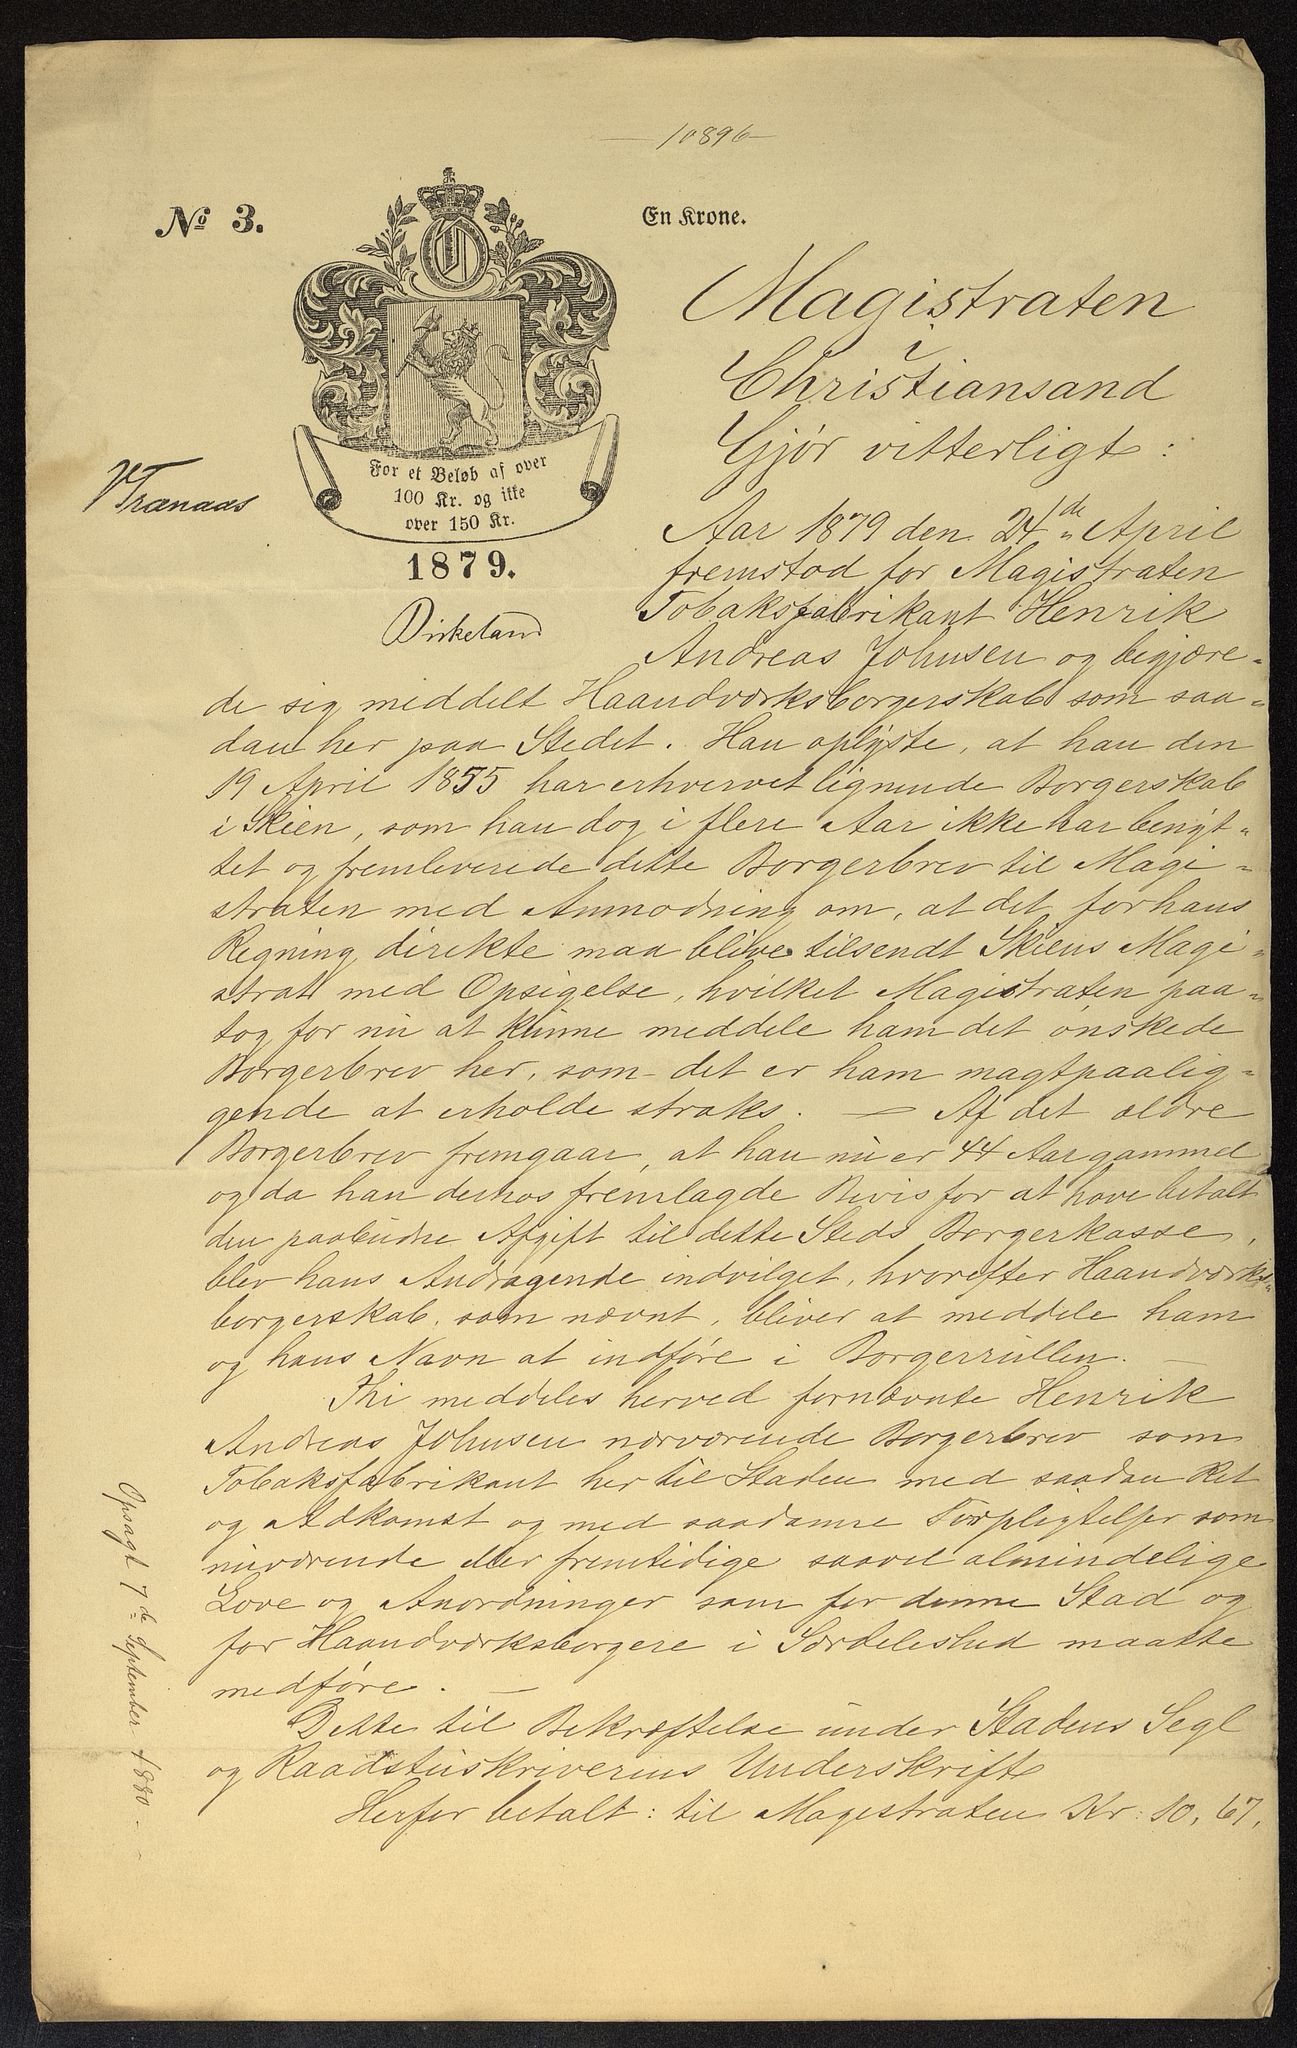 — 10896 —
No 3.
En Krone.
Magistraten
i
Christiansand
Gjør vitterligt:
For et Beløb af over
100 Kr. og ikke
over 150 Kr.
1879.
VTranaas
Birkeland
Aar 1879 den 24de April
fremstod for Magistraten
Tobaksfabrikant Henrik
Andreas Johnsen og begjære-
de sig meddelt Haandværksborgerskab som saa-
dan her paa Stedet. Han oplyste, at han den
19 April 1855 har erhvervet lignende Borgerskab
i Skien, som han dog i flere Aar ikke har benyt-
tet og fremleverede dette Borgerbrev til Magi-
straten med Anmodning om, at det for hans
Regning direkte maa blive tilsendt Skiens Magi-
strat med Opsigelse, hvilket Magistraten paa-
tog for nu at kunne meddele ham det ønskede
Borgerbrev her, som det er ham magtpaalig-
gende at erholde straks. — Af det ældre
Borgerbrev fremgaar, at han nu er 44 Aar gammel
og da han derhos fremlagde Bevis for at have betalt
den paabudne Afgift til dette Steds Borgerkasse,
blev hans Andragende indvilget, hvorefter Haandværks-
borgerskab, som nævnt, bliver at meddele ham
og hans Navn at indføre i Borgerrullen. —
Thi meddeles herved fornævnte Henrik
Andreas Johnsen nærværende Borgerbrev som
Tobaksfabrikant her til Staden med saadan Ret
og Adkomst og med saadanne Forpligtelser som
nuværende eller fremtidige saavel almindelige
Love og Anordninger som for denne Stad og
for Haandværksborgere i Særdeleshed maatte
medføre. —
Dette til Bekræftelse under Stadens Segl
og Raadstuskriverens Underskrift
Herfor betalt: til Magistraten Kr: 10,67,
Opsagt 7de September 1880 —